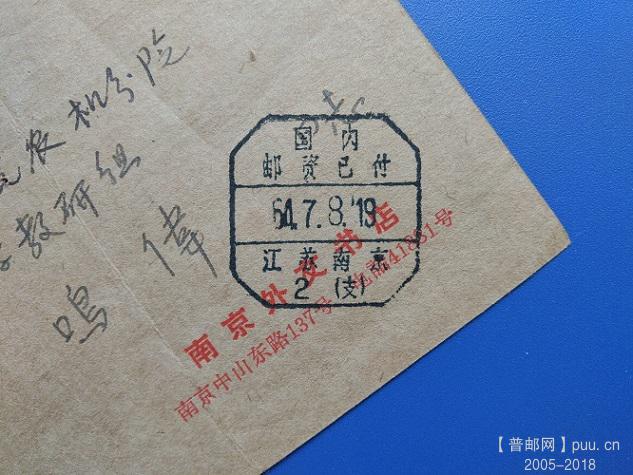 农机分院
教研组
鸣 伟
国内
邮资已付
64.7.8.19
江苏南京
2 (支)
南京外文书店
南京中山东路137号 电話41881号
【普邮网】puu.cn
2005-2018